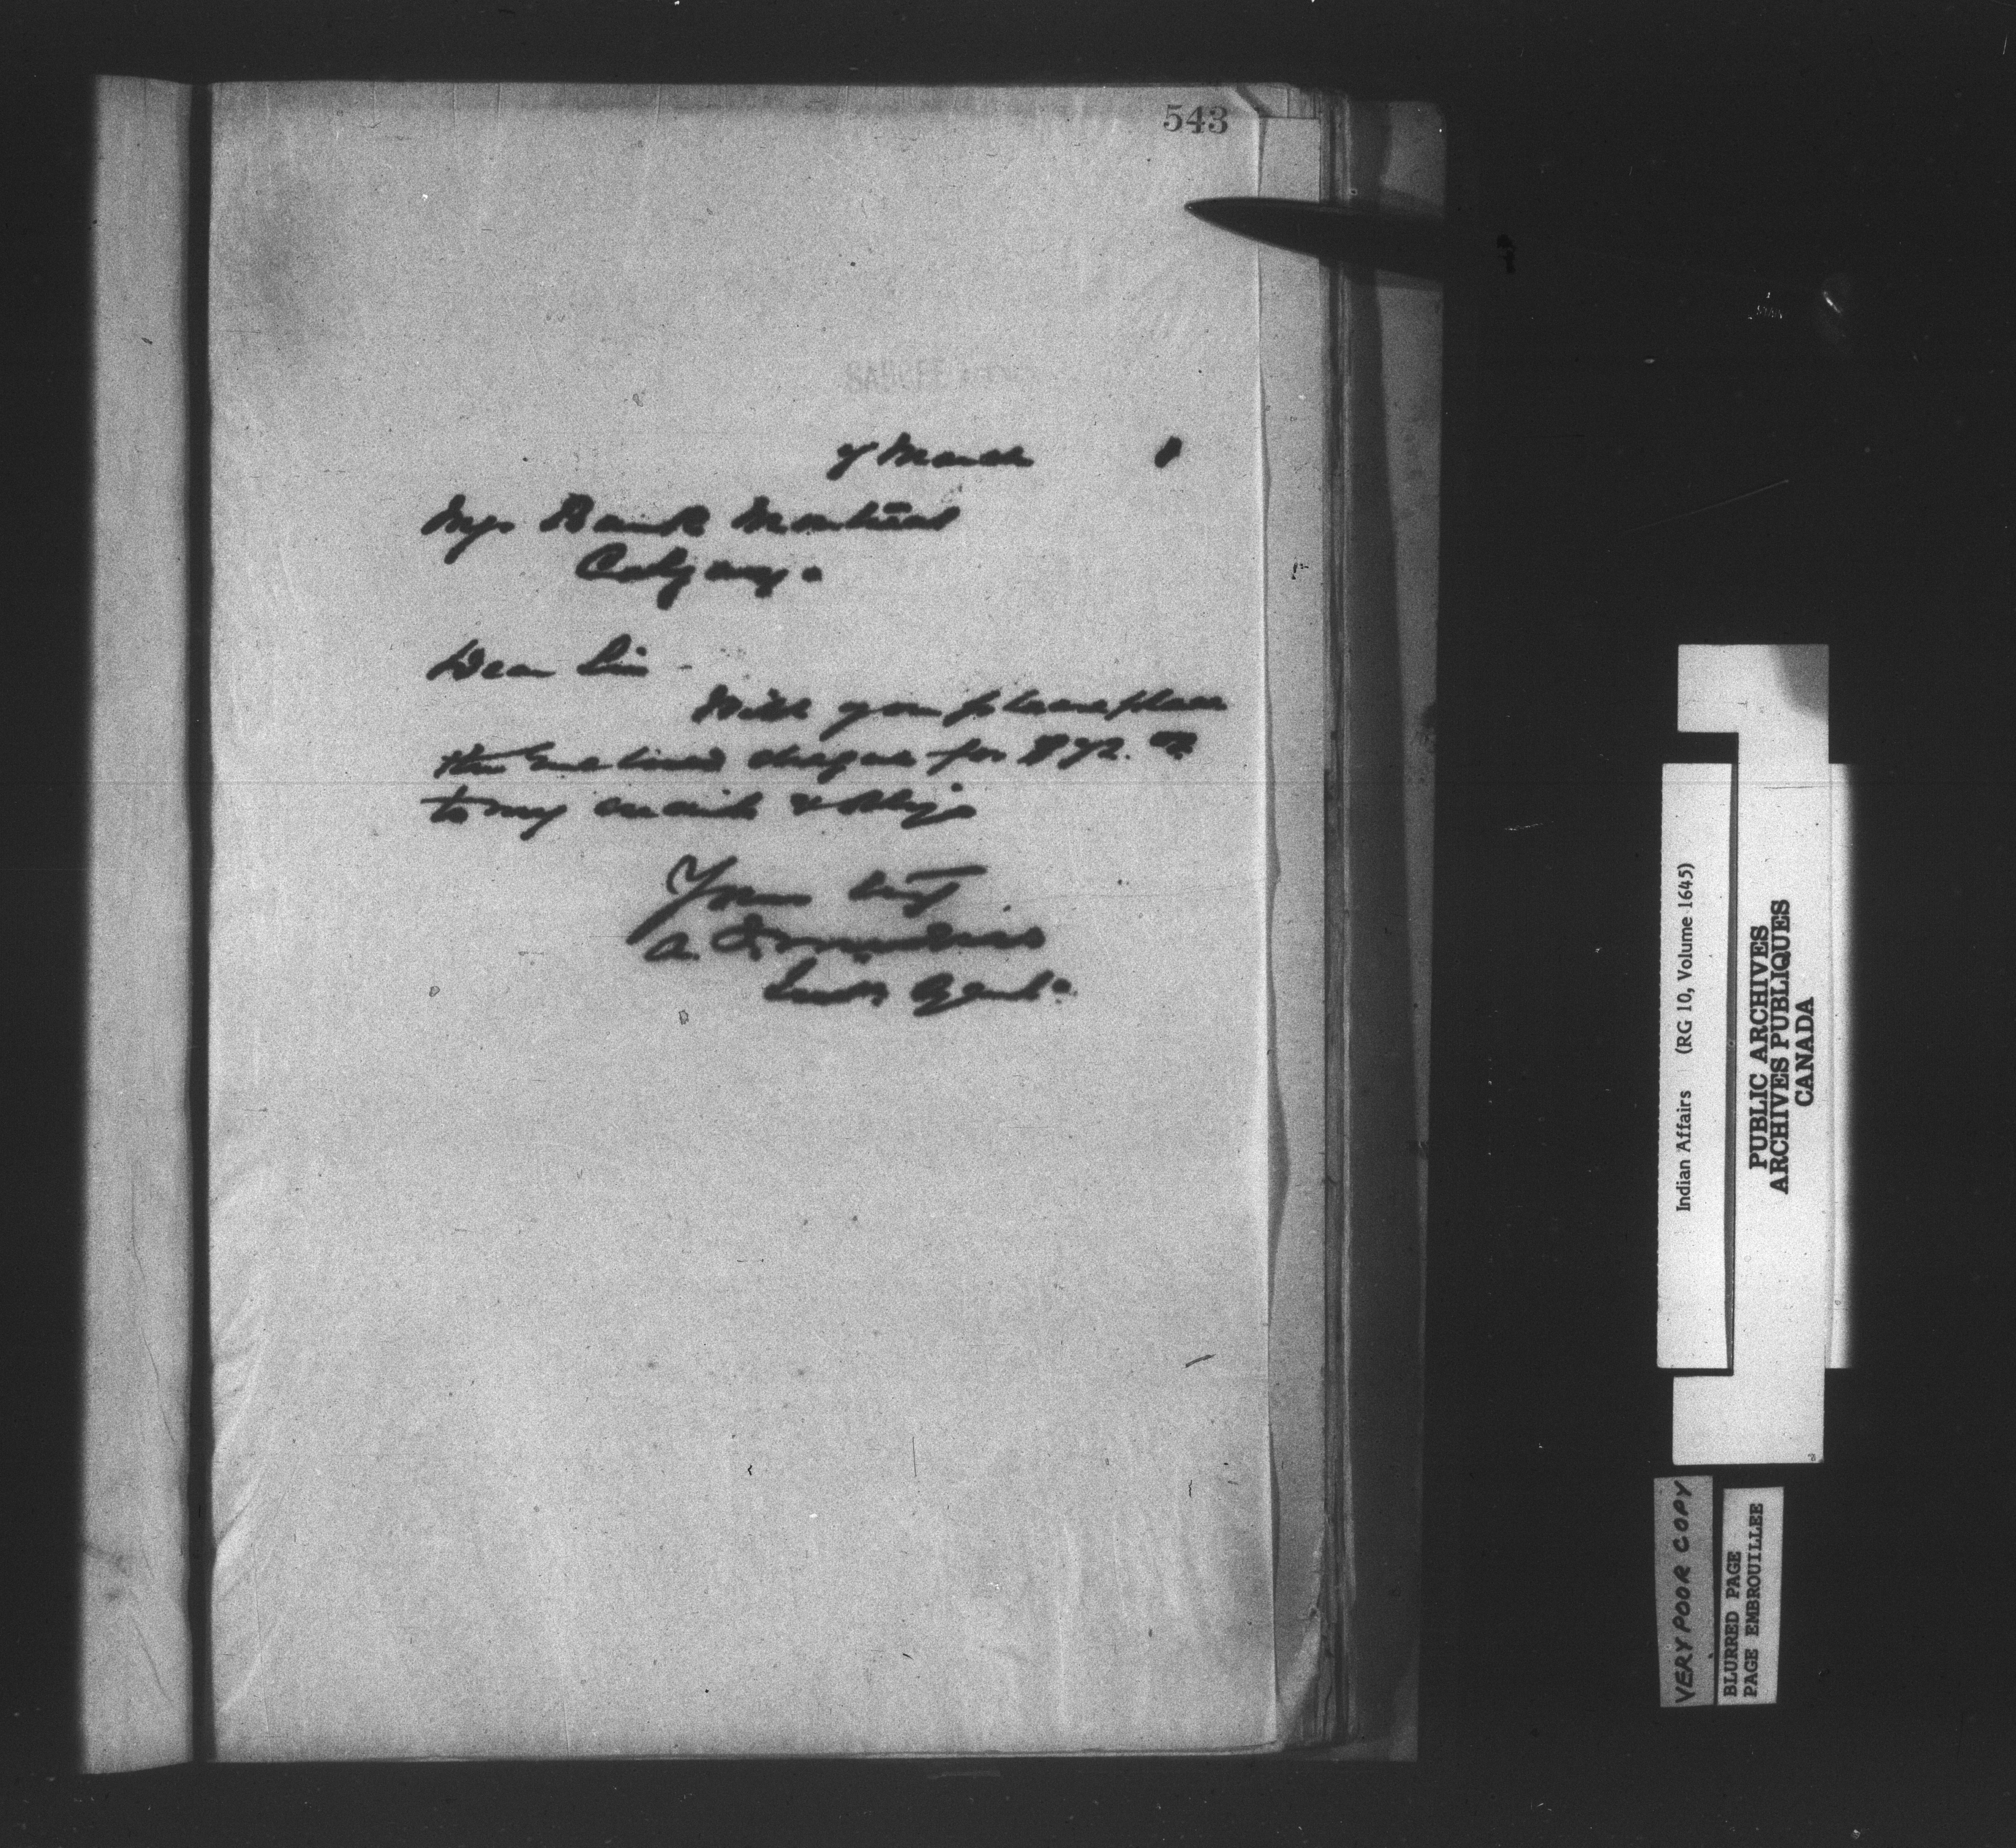 543
March
Mgr Bank Montreal
Calgary.
Dear Sir
Will you please place
the enclosed cheque for $
to my credit & oblige
Yours
A.
Indn Agent.
Indian Affairs (RG 10, Volume 1645)
PUBLIC ARCHIVES
ARCHIVES PUBLIQUES
CANADA
VERY POOR COPY
BLURRED PAGE
PAGE EMBROUILLEE